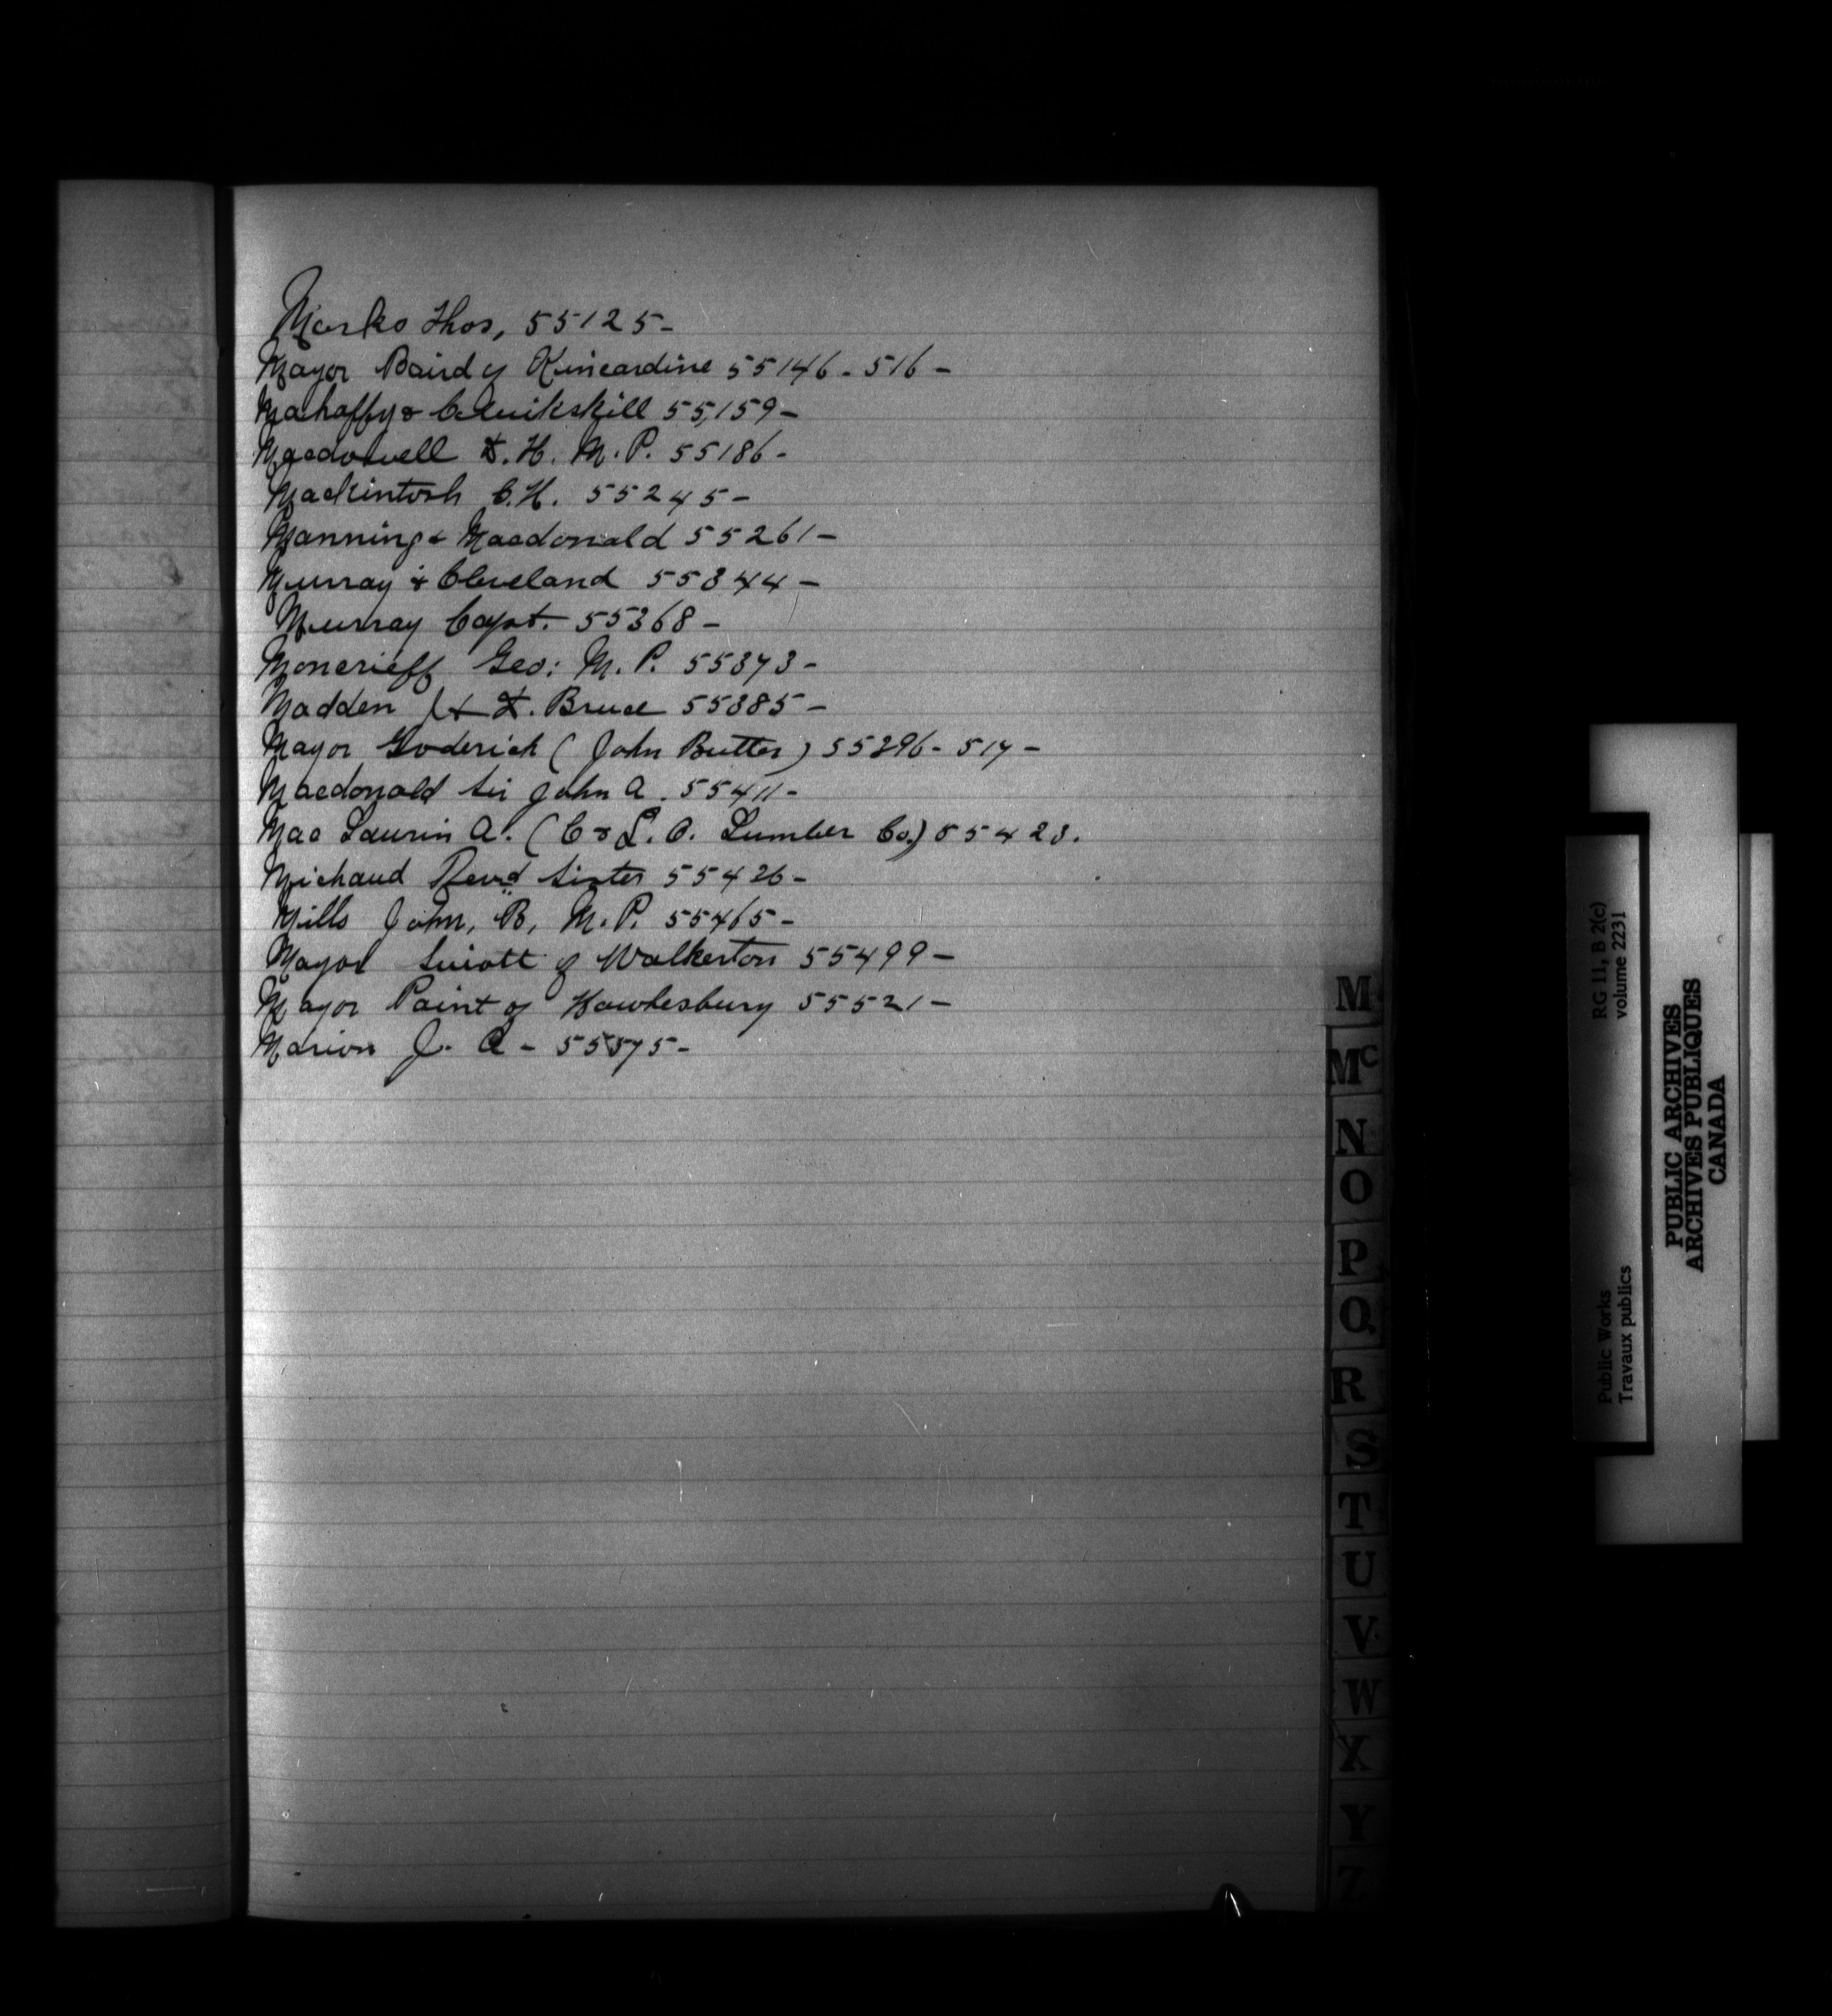 Marks Thos, 55125-
Mayor Baird of Kincardine 55146-516-
Mahaffy & Clinkskill 55,159-
Macdowell D.H. M.P. 55186-
Mackintosh C.H. 55245-
Manning & Macdonald 55261-
Murray & Cleveland 55344-
Murray Capt. 55368-
Moncrieff Geo: M.P. 55373-
Madden D. Bruce 55385-
Mayor Goderich (John Butler) 55396-517-
Macdonald Sir John A. 55411-
Mac Laurin A. (C & L. O. Lumber Co.) 55423.
Michaud Revd Sister 55426-
Mills John, B, M.P. 55465-
Mayor of Walkerton 55499-
Mayor Paint of Hawkesbury 55521-
Marion J. A - 55575-
M
Mc
N
O
P
Q
R
S
T
U
V
W
X
Y
Z
Public Works RG 11, B 2(c)
Travaux publics volume 2231
PUBLIC ARCHIVES
ARCHIVES PUBLIQUES
CANADA